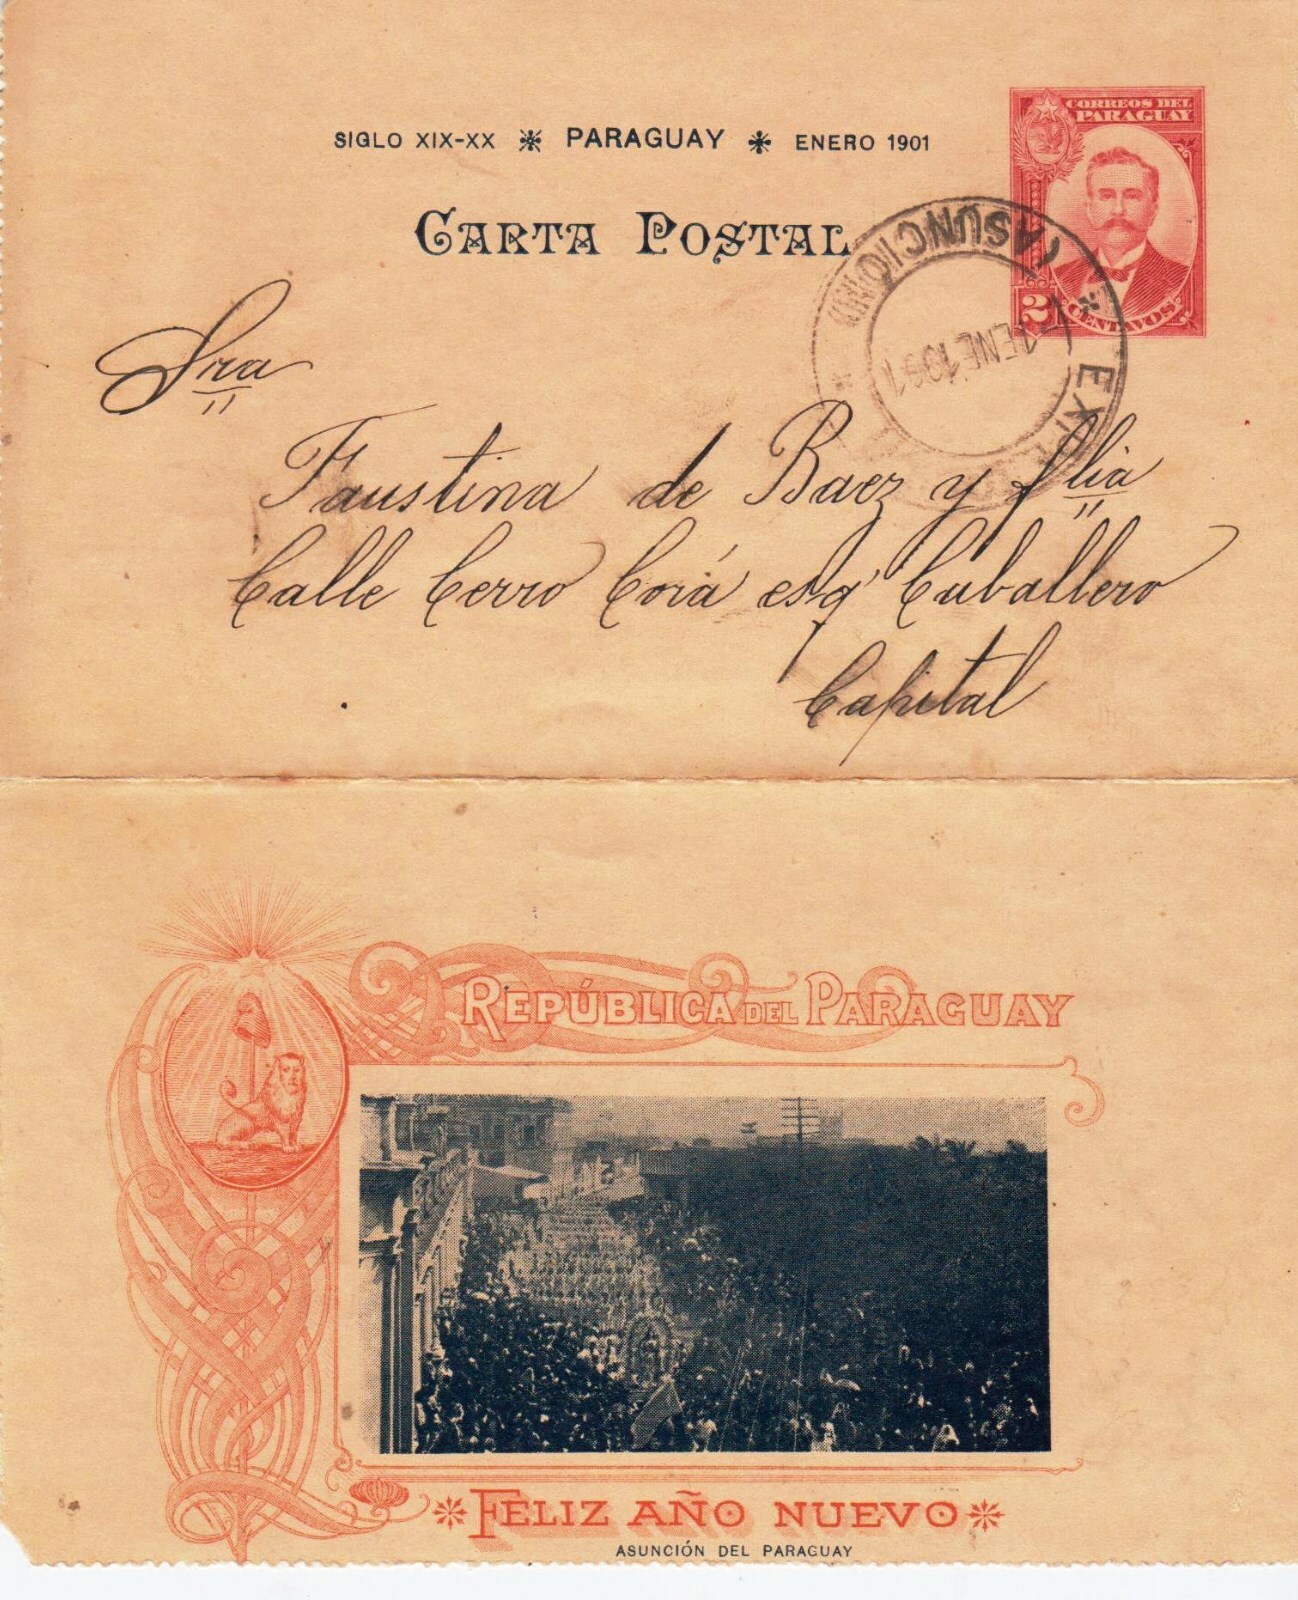 SIGLO XIX-XX ※ PARAGUAY ※ ENERO 1901
CORREOS DEL
PARAGUAY
2
CENTAVOS
CARTA POSTAL
ASUNCION
ENE 1901
Sra
Faustina de Baez y flia
Calle Cerro Corá esqª Caballero
Capital
REPÚBLICA DEL PARAGUAY
※ FELIZ AÑO NUEVO ※
ASUNCIÓN DEL PARAGUAY